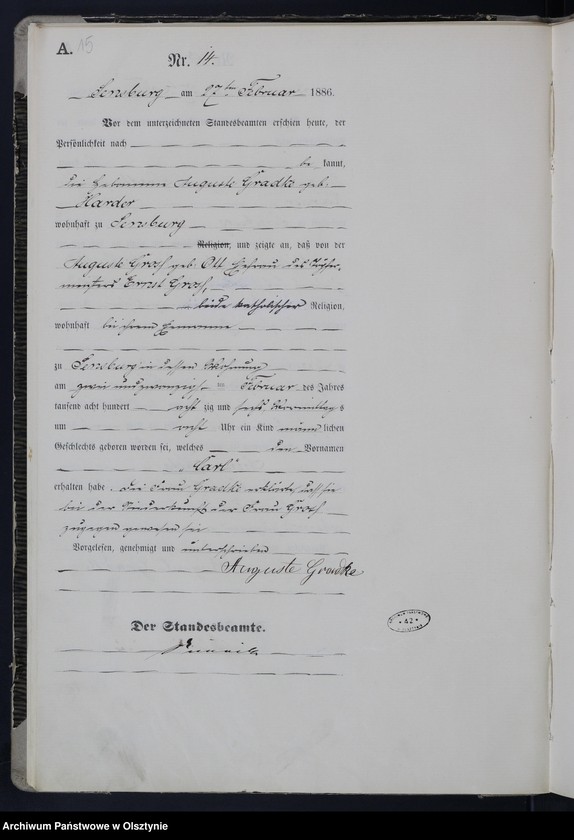 A. 15
Nr. 14.
Sensburg am 27ten Februar 1886.
Vor dem unterzeichneten Standesbeamten erschien heute, der
Persönlichkeit nach
be kannt,
die Hebamme Auguste Gradke geb:
Harder
wohnhaft zu Sensburg
Religion, und zeigte an, daß von der
Auguste Groß geb. Ott Ehefrau des
Ernst Groß,
beide katholischer Religion,
wohnhaft bei ihrem Ehemanne
zu Sensburg in dessen Wohnung
am zwei und zwanzigsten Februar des Jahres
tausend acht hundert acht zig und sechs Vormittags
um acht Uhr ein Kind männlichen
Geschlechts geboren worden sei, welches den Vornamen
"Carl"
erhalten habe. Die Frau Gradke erklärte, daß sie
bei der Niederkunft der Frau Groß
zugegen gewesen sei
Vorgelesen, genehmigt und unterschrieben
Auguste Gradke
Der Standesbeamte.
Archiwum Państwowe w Olsztynie